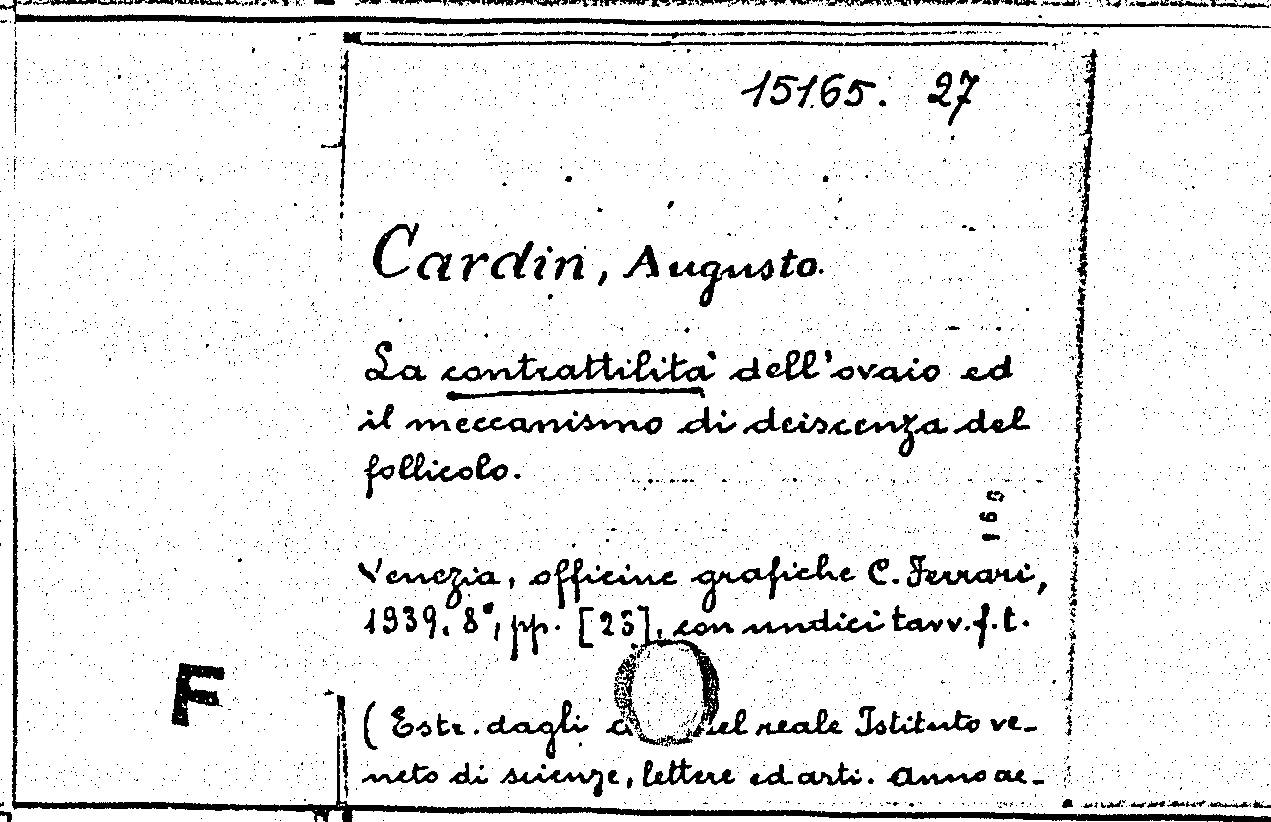 15165. 27
Cardin, Augusto.
La contrattilità dell'ovaio ed
il meccanismo di deiscenza del
follicolo.
163
Venezia, officine grafiche C. Ferrari,
1939. 8°, pp. [23], con undici tavv. f. t.
F
( Estr. dagli reale Istituto ve-
neto di scienze, lettere ed arti. Anno ac-